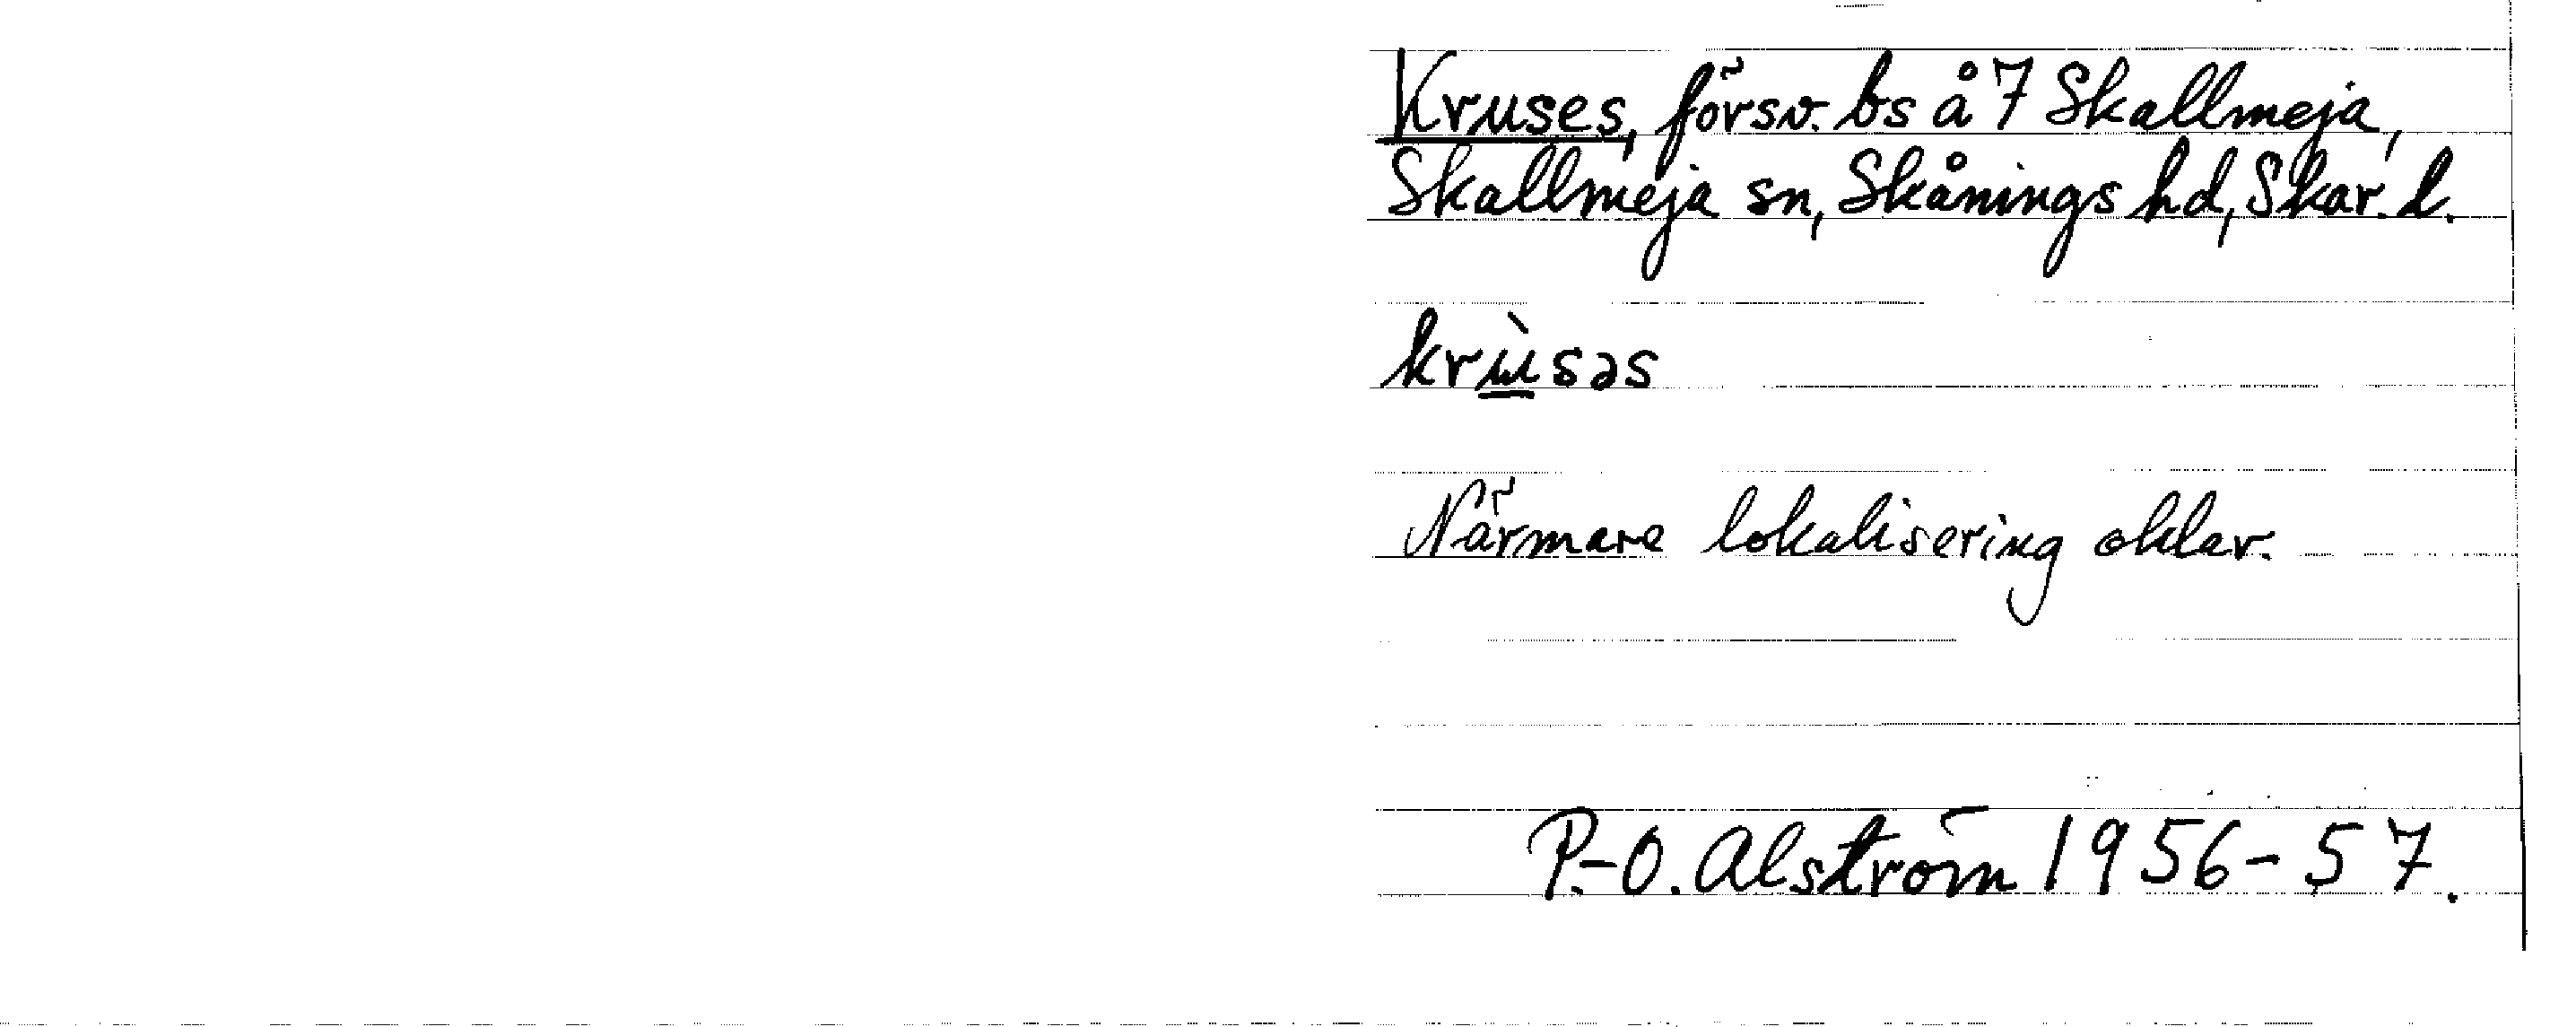 Kruses, försv. bs å 7 Skallmeja,
Skallmeja sn, Skånings hd, Skar. l.
krùsəs
Närmare lokalisering oklar.
P.-O. Alström 1956-57.